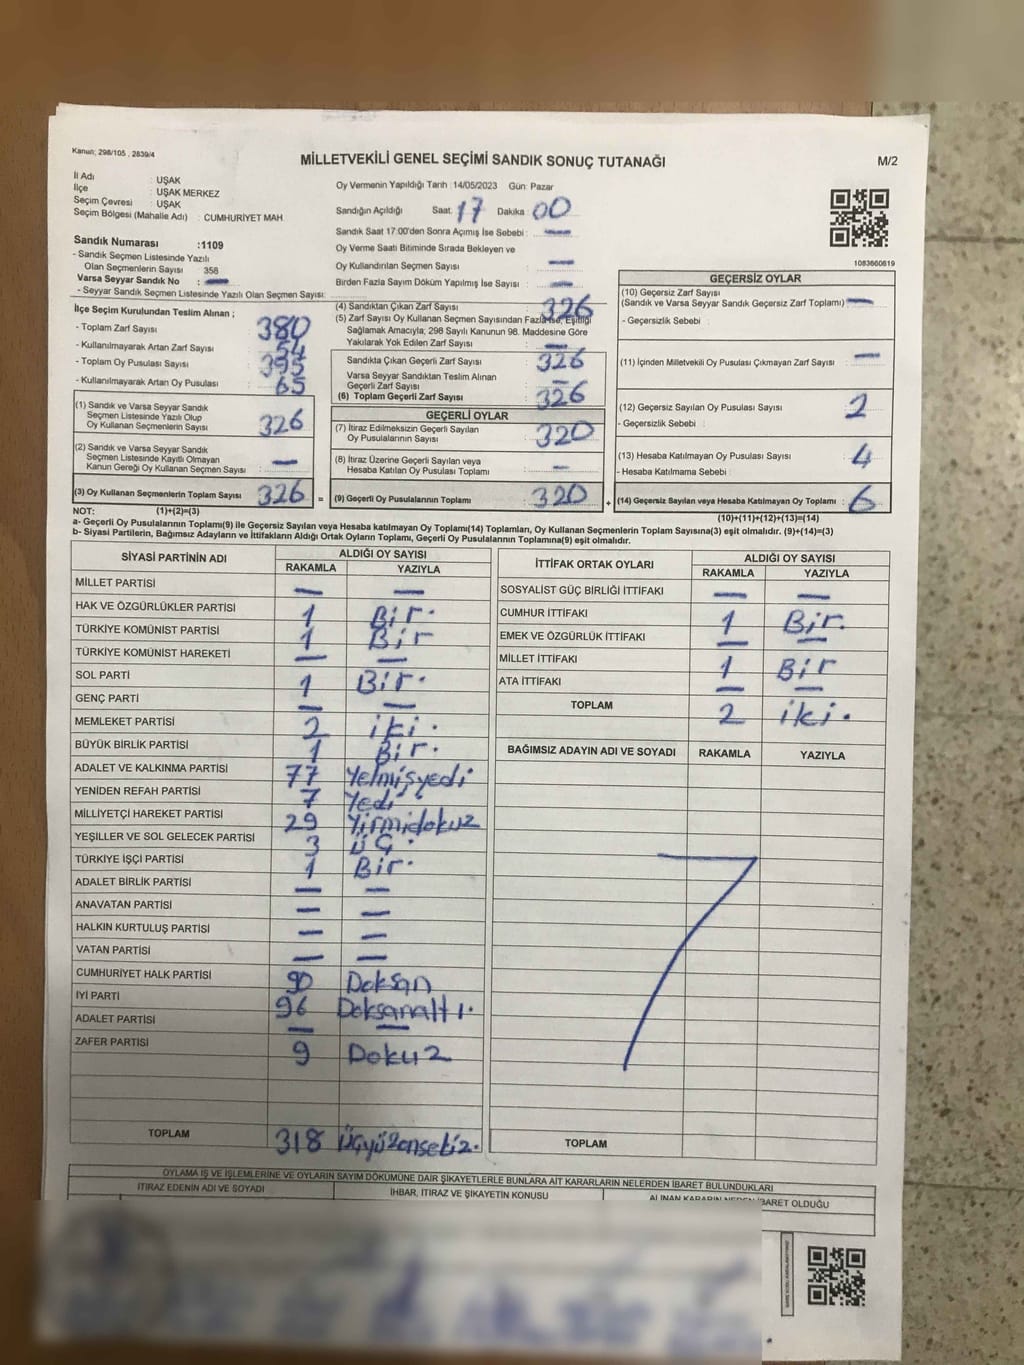 Kanun; 298/105 , 2839/4
MİLLETVEKİLİ GENEL SEÇİMİ SANDIK SONUÇ TUTANAĞI
M/2
İl Adı : UŞAK
İlçe : UŞAK MERKEZ
Seçim Çevresi : UŞAK
Seçim Bölgesi (Mahalle Adı) : CUMHURİYET MAH
Sandık Numarası :1109
- Sandık Seçmen Listesinde Yazılı
Olan Seçmenlerin Sayısı 358
Varsa Seyyar Sandık No : —
- Seyyar Sandık Seçmen Listesinde Yazılı Olan Seçmen Sayısı:
Oy Vermenin Yapıldığı Tarih :14/05/2023 Gün: Pazar
Sandığın Açıldığı Saat: 17 Dakika : 00
Sandık Saat 17:00'den Sonra Açımış İse Sebebi : —
Oy Verme Saati Bitiminde Sırada Bekleyen ve
Oy Kullandırılan Seçmen Sayısı —
Birden Fazla Sayım Döküm Yapılmış İse Sayısı : —
1083660819
İlçe Seçim Kurulundan Teslim Alınan ;
- Toplam Zarf Sayısı : 380
- Kullanılmayarak Artan Zarf Sayısı : 54
- Toplam Oy Pusulası Sayısı : 395
- Kullanılmayarak Artan Oy Pusulası : 65
(1) Sandık ve Varsa Seyyar Sandık
Seçmen Listesinde Yazılı Olup
Oy Kullanan Seçmenlerin Sayısı : 326
(2) Sandık ve Varsa Seyyar Sandık
Seçmen Listesinde Kayıtlı Olmayan
Kanun Gereği Oy Kullanan Seçmen Sayısı : —
(3) Oy Kullanan Seçmenlerin Toplam Sayısı : 326 =
(4) Sandıktan Çıkan Zarf Sayısı : 326
(5) Zarf Sayısı Oy Kullanan Seçmen Sayısından Fazla ise, Eşitliği
Sağlamak Amacıyla; 298 Sayılı Kanunun 98. Maddesine Göre
Yakılarak Yok Edilen Zarf Sayısı : —
Sandıkta Çıkan Geçerli Zarf Sayısı : 326
Varsa Seyyar Sandıktan Teslim Alınan
Geçerli Zarf Sayısı : —
(6) Toplam Geçerli Zarf Sayısı : 326
GEÇERLİ OYLAR
(7) İtiraz Edilmeksizin Geçerli Sayılan
Oy Pusulalarının Sayısı : 320
(8) İtiraz Üzerine Geçerli Sayılan veya
Hesaba Katılan Oy Pusulası Toplamı : —
(9) Geçerli Oy Pusulalarının Toplamı : 320 +
GEÇERSİZ OYLAR
(10) Geçersiz Zarf Sayısı
(Sandık ve Varsa Seyyar Sandık Geçersiz Zarf Toplamı) : —
- Geçersizlik Sebebi :
(11) İçinden Milletvekili Oy Pusulası Çıkmayan Zarf Sayısı : —
(12) Geçersiz Sayılan Oy Pusulası Sayısı : 2
- Geçersizlik Sebebi :
(13) Hesaba Katılmayan Oy Pusulası Sayısı : 4
- Hesaba Katılmama Sebebi :
(14) Geçersiz Sayılan veya Hesaba Katılmayan Oy Toplamı : 6
NOT: (1)+(2)=(3) (10)+(11)+(12)+(13)=(14)
a- Geçerli Oy Pusulalarının Toplamı(9) ile Geçersiz Sayılan veya Hesaba katılmayan Oy Toplamı(14) Toplamları, Oy Kullanan Seçmenlerin Toplam Sayısına(3) eşit olmalıdır. (9)+(14)=(3)
b- Siyasi Partilerin, Bağımsız Adayların ve İttifakların Aldığı Ortak Oyların Toplamı, Geçerli Oy Pusulalarının Toplamına(9) eşit olmalıdır.
SİYASİ PARTİNİN ADI ALDIĞI OY SAYISI
RAKAMLA YAZIYLA
MİLLET PARTİSİ — —
HAK VE ÖZGÜRLÜKLER PARTİSİ 1 Bir.
TÜRKİYE KOMÜNİST PARTİSİ 1 Bir
TÜRKİYE KOMÜNİST HAREKETİ — —
SOL PARTİ 1 Bir.
GENÇ PARTİ — —
MEMLEKET PARTİSİ 2 iki.
BÜYÜK BİRLİK PARTİSİ 1 Bir.
ADALET VE KALKINMA PARTİSİ 77 Yetmişyedi
YENİDEN REFAH PARTİSİ 7 Yedi
MİLLİYETÇİ HAREKET PARTİSİ 29 Yirmidokuz
YEŞİLLER VE SOL GELECEK PARTİSİ 3 üç.
TÜRKİYE İŞÇİ PARTİSİ 1 Bir.
ADALET BİRLİK PARTİSİ — —
ANAVATAN PARTİSİ — —
HALKIN KURTULUŞ PARTİSİ — —
VATAN PARTİSİ — —
CUMHURİYET HALK PARTİSİ 90 Doksan
İYİ PARTİ 96 Doksanaltı.
ADALET PARTİSİ — —
ZAFER PARTİSİ 9 Dokuz
TOPLAM 318 Üçyüzonsekiz.
İTTİFAK ORTAK OYLARI ALDIĞI OY SAYISI
RAKAMLA YAZIYLA
SOSYALİST GÜÇ BİRLİĞİ İTTİFAKI — —
CUMHUR İTTİFAKI 1 Bir.
EMEK VE ÖZGÜRLÜK İTTİFAKI — —
MİLLET İTTİFAKI 1 Bir
ATA İTTİFAKI — —
TOPLAM 2 iki.
BAĞIMSIZ ADAYIN ADI VE SOYADI RAKAMLA YAZIYLA
TOPLAM
OYLAMA İŞ VE İŞLEMLERİNE VE OYLARIN SAYIM DÖKÜMÜNE DAİR ŞİKAYETLERLE BUNLARA AİT KARARLARIN NELERDEN İBARET BULUNDUKLARI
İTİRAZ EDENİN ADI VE SOYADI İHBAR, İTİRAZ VE ŞİKAYETİN KONUSU ALINAN KARARIN NEDEN İBARET OLDUĞU